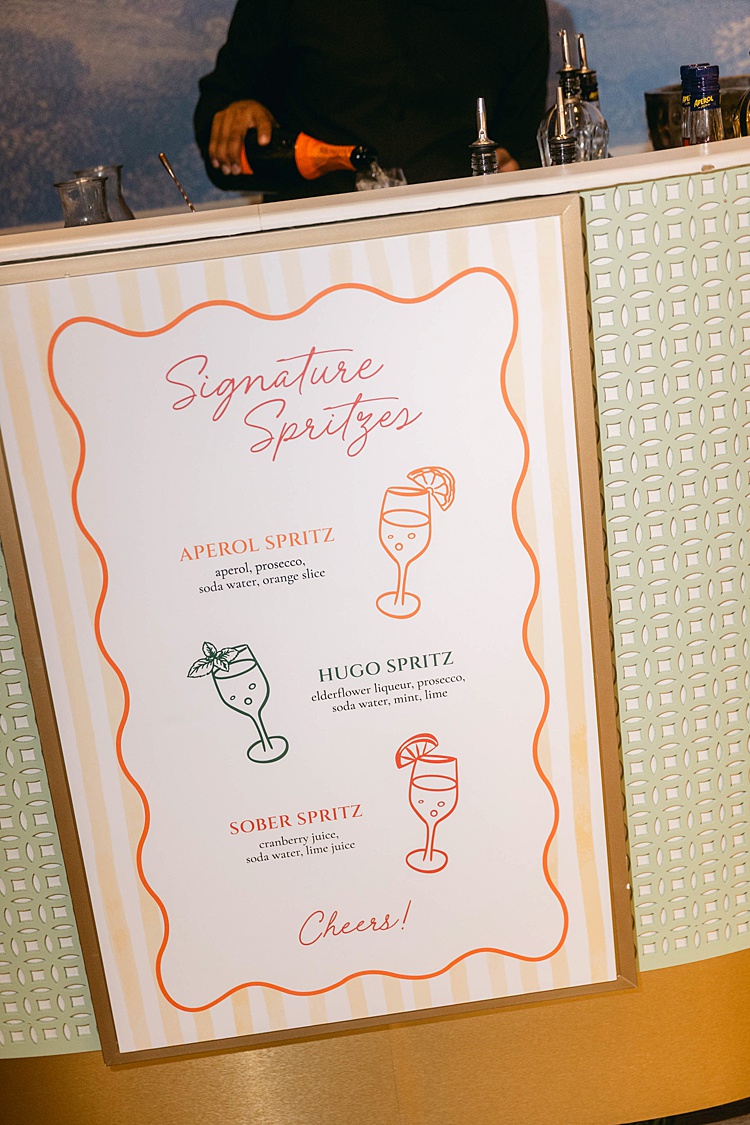 APEROL
Signature
Spritzes
APEROL SPRITZ
aperol, prosecco,
soda water, orange slice
HUGO SPRITZ
elderflower liqueur, prosecco,
soda water, mint, lime
SOBER SPRITZ
cranberry juice,
soda water, lime juice
Cheers!